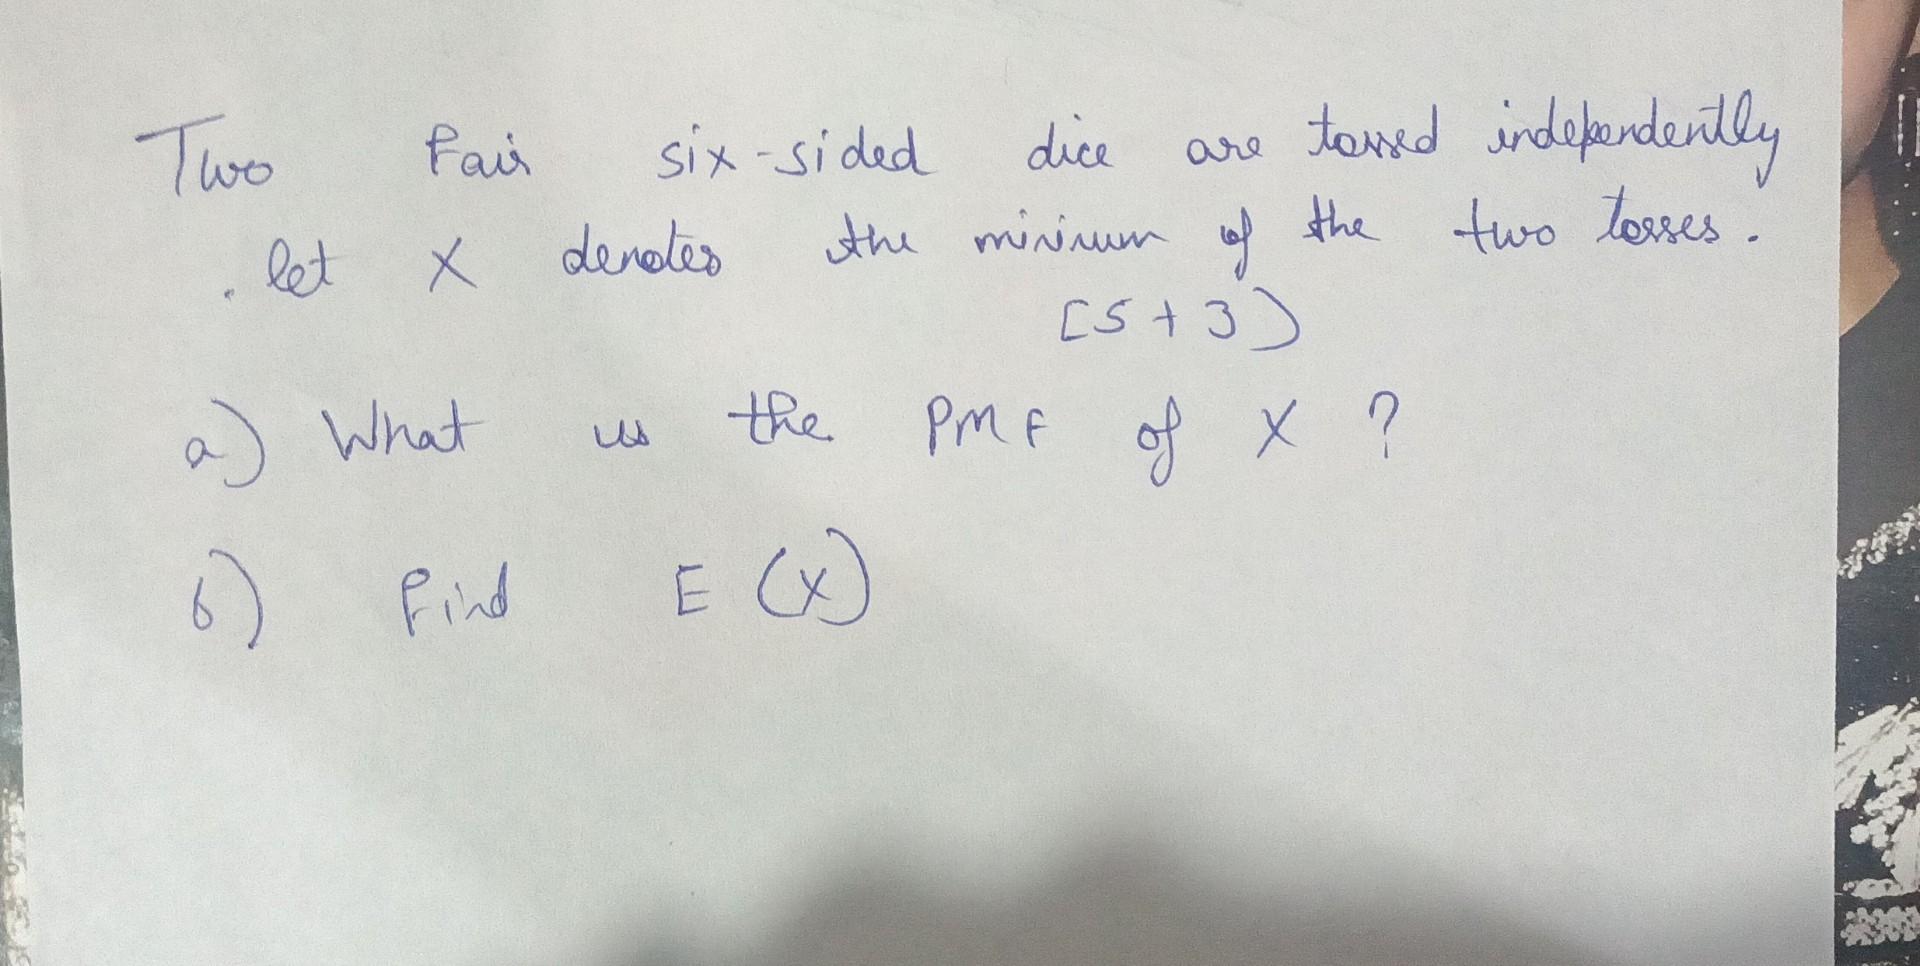 Two Fair six-sided dice are tossed independently
. let X denotes the minimum of the two tosses.
[5+3)
a) What is the PMF of X ?
b) Find E (X)